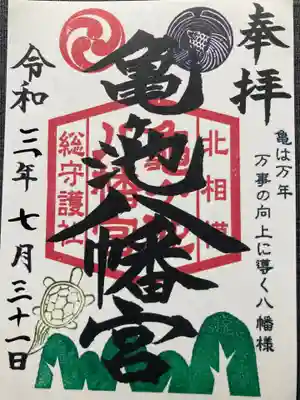 奉拝
亀は万年
万事の向上に導く八幡様
北相模
亀ヶ池八幡宮
総守護社
亀ヶ池八幡宮
令和三年七月三十一日